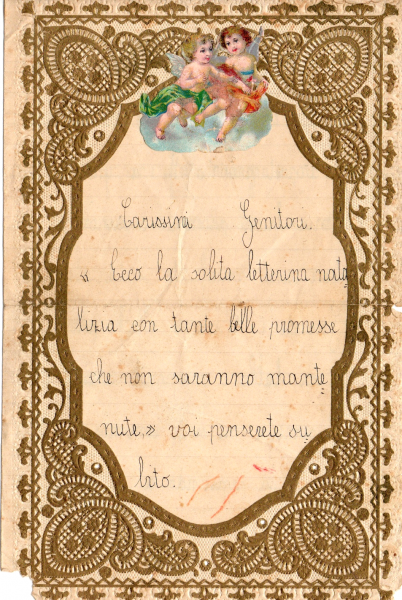 Carissimi Genitori.
« Ecco la solita letterina nata
lizia con tante belle promesse
che non saranno mante
nute,» voi penserete su
bito.